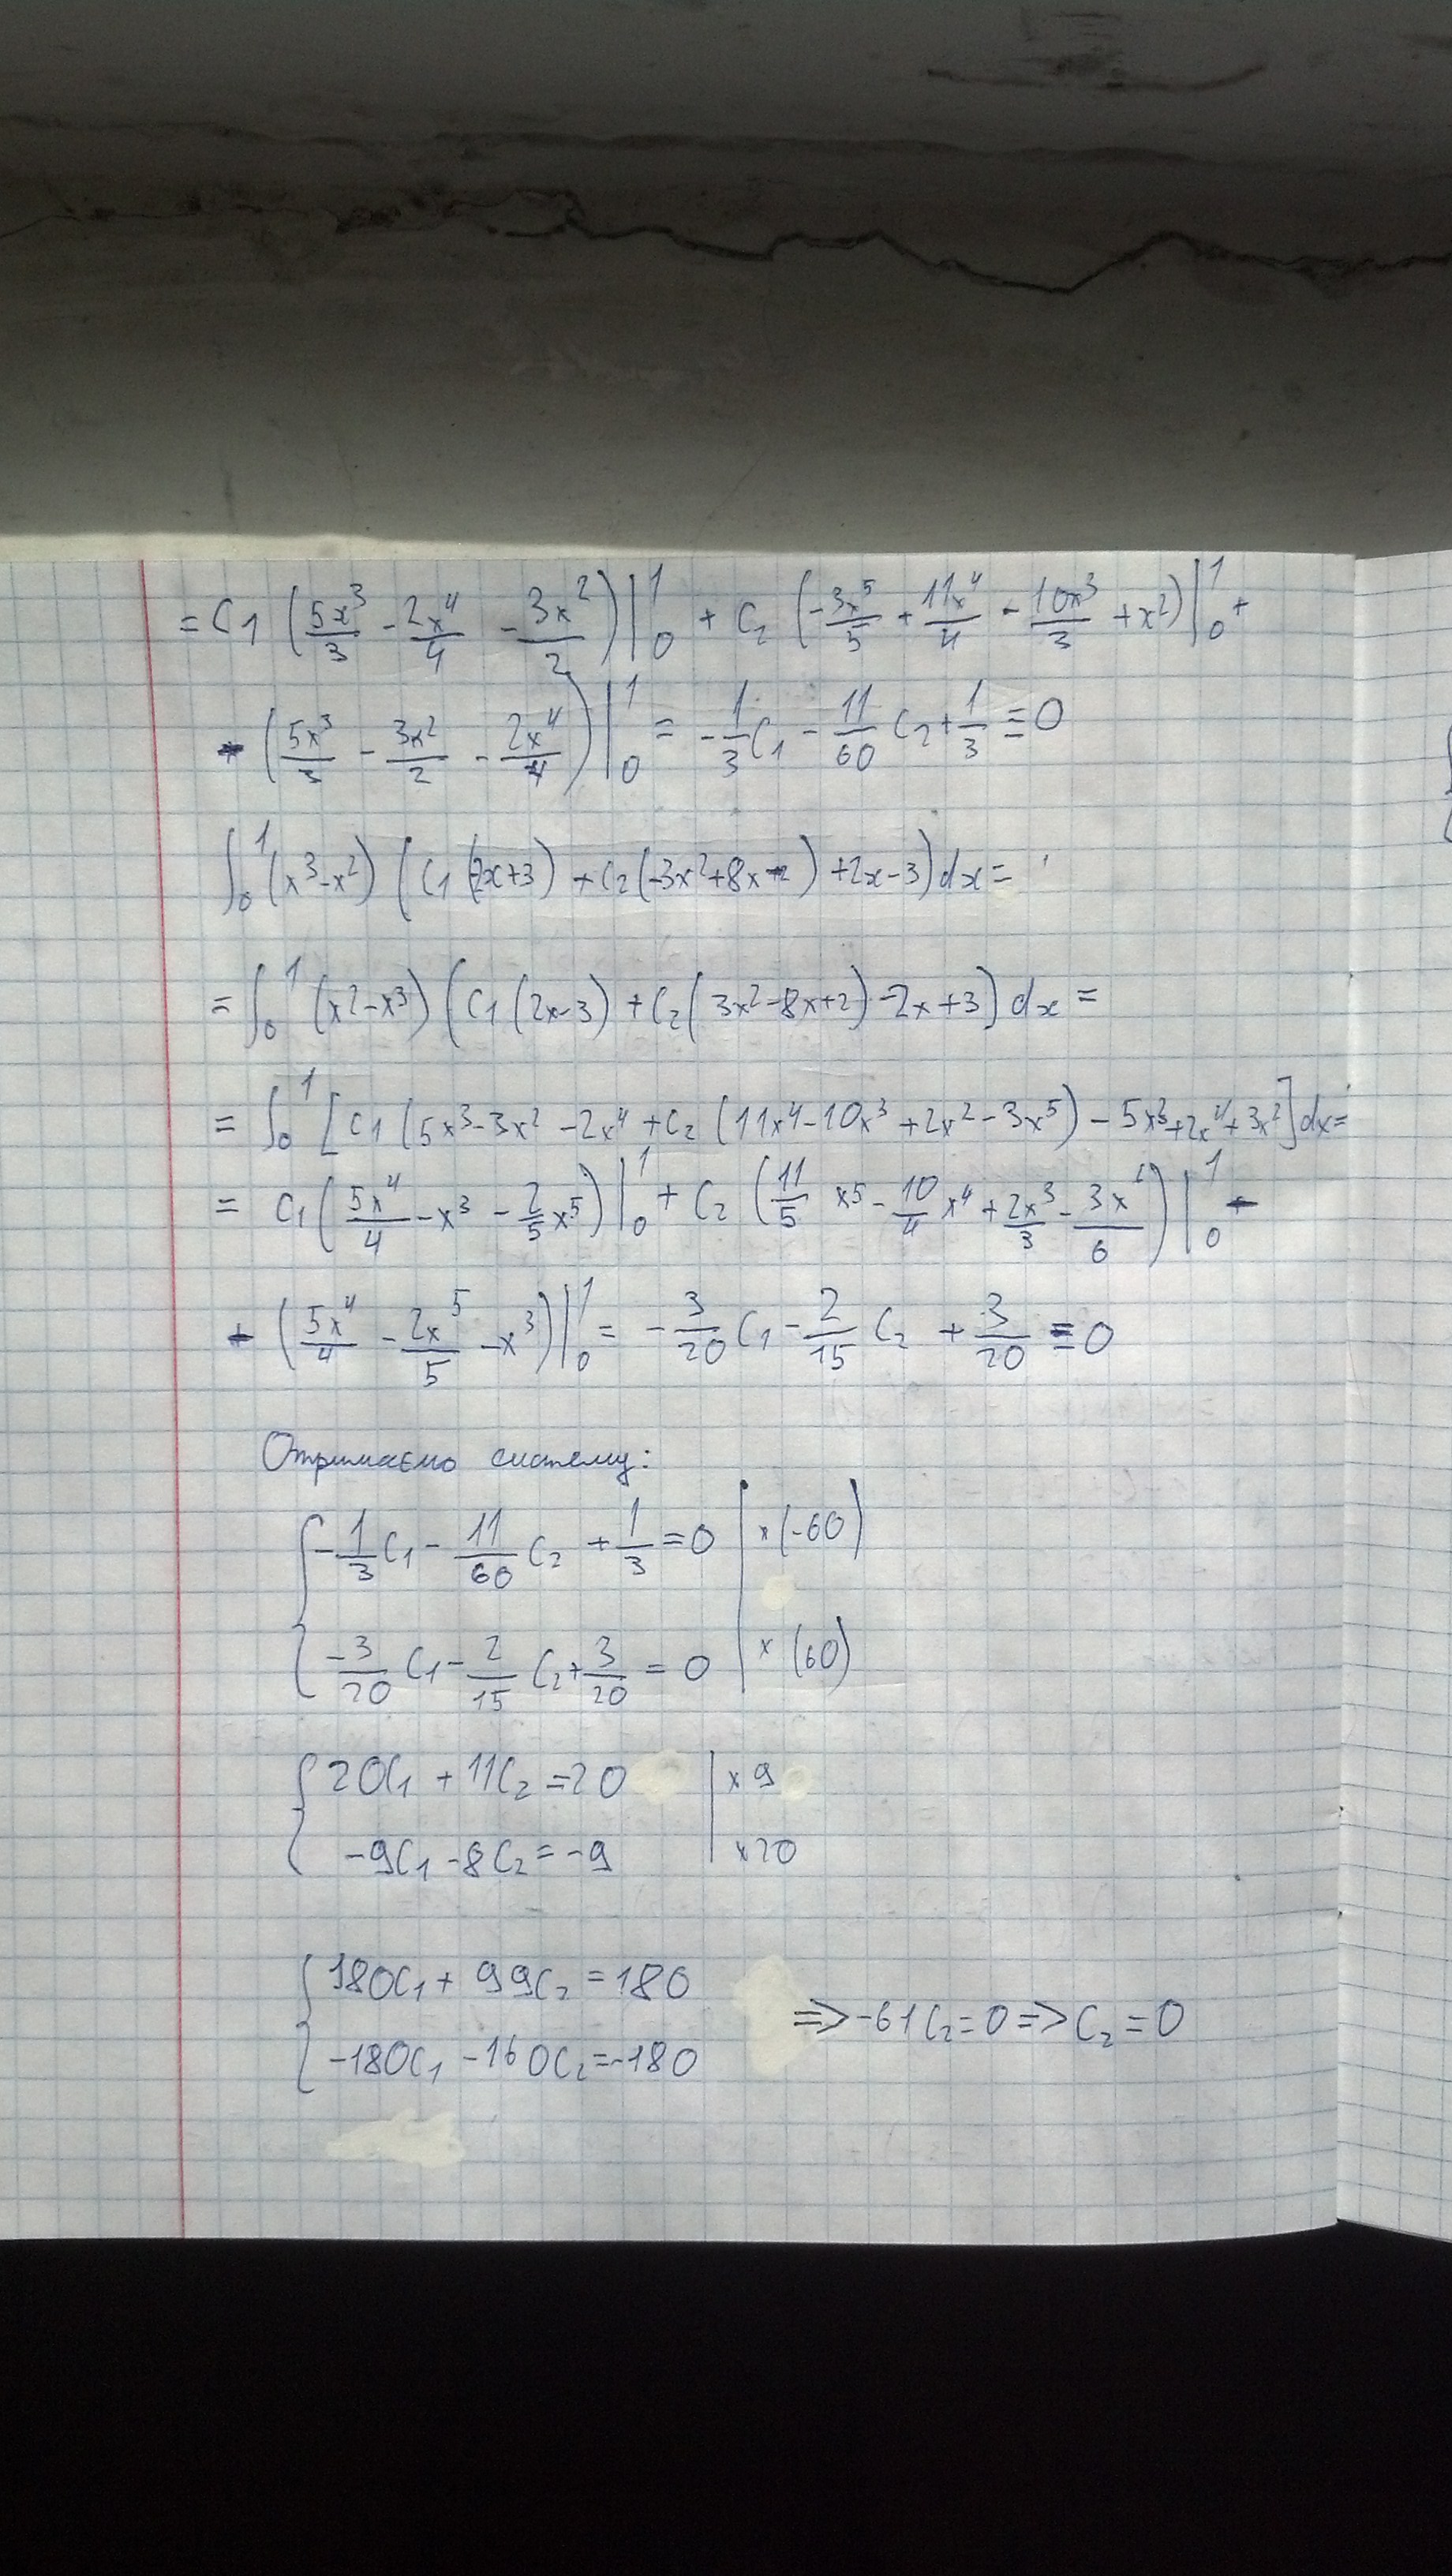 = C₁ (5x³/3 - 2x⁴/4 - 3x²/2)|₀¹ + C₂ (-3x⁵/5 + 11x⁴/4 - 10x³/3 + x²)|₀¹ +
+ (5x³/3 - 3x²/2 - 2x⁴/4)|₀¹ = -1/3 C₁ - 11/60 C₂ + 1/3 = 0
∫₀¹ (x³-x²) (C₁ (-2x+3) + C₂ (-3x²+8x-2) + 2x-3) dx =
= ∫₀¹ (x²-x³) (C₁ (2x-3) + C₂ (3x²-8x+2) -2x+3) dx =
= ∫₀¹ [C₁ (5x³-3x²-2x⁴ + C₂ (11x⁴-10x³+2x²-3x⁵) - 5x³+2x⁴+3x²] dx =
= C₁ (5x⁴/4 - x³ - 2/5 x⁵)|₀¹ + C₂ (11/5 x⁵ - 10/4 x⁴ + 2x³/3 - 3x⁶/6)|₀¹ +
+ (5x⁴/4 - 2x⁵/5 - x³)|₀¹ = -3/20 C₁ - 2/15 C₂ + 3/20 = 0
Отримаємо систему:
{ -1/3 C₁ - 11/60 C₂ + 1/3 = 0 | × (-60)
-3/20 C₁ - 2/15 C₂ + 3/20 = 0 | × (60)
{ 20C₁ + 11C₂ = 20 | × 9
-9C₁ - 8C₂ = -9 | × 20
{ 180C₁ + 99C₂ = 180
-180C₁ - 160C₂ = -180
=> -61C₂ = 0 => C₂ = 0